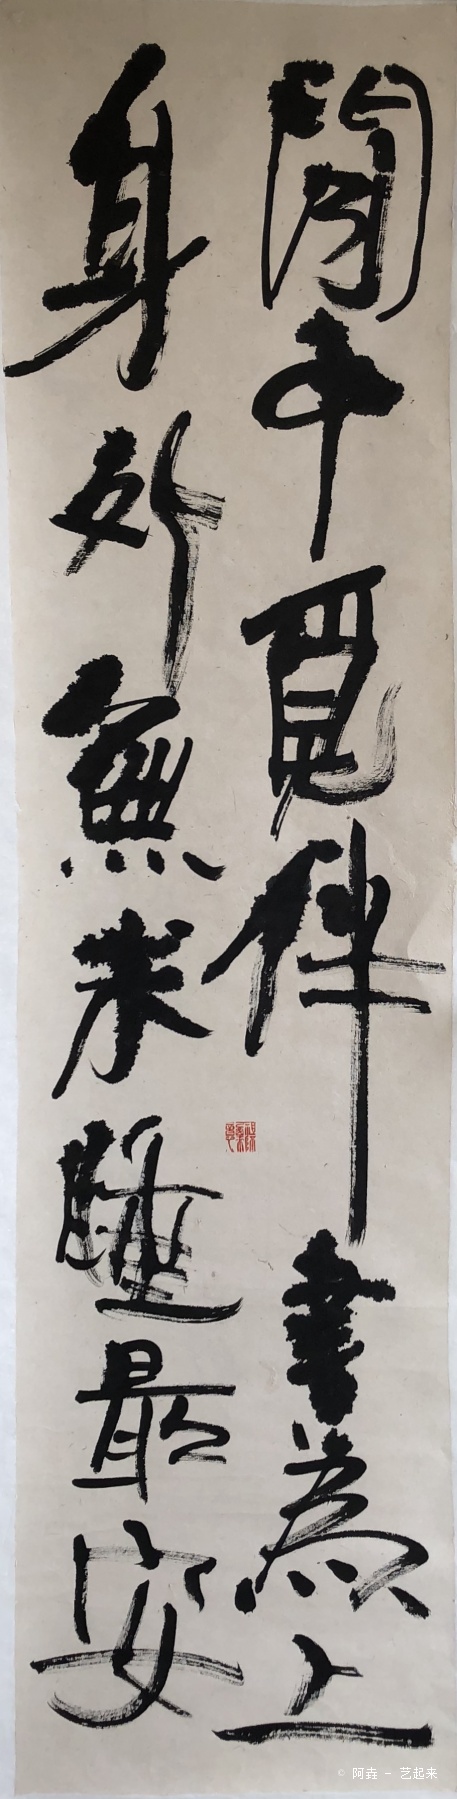 閒中覓伴書為上
身外無求睡最安
© 阿垚 - 艺起来